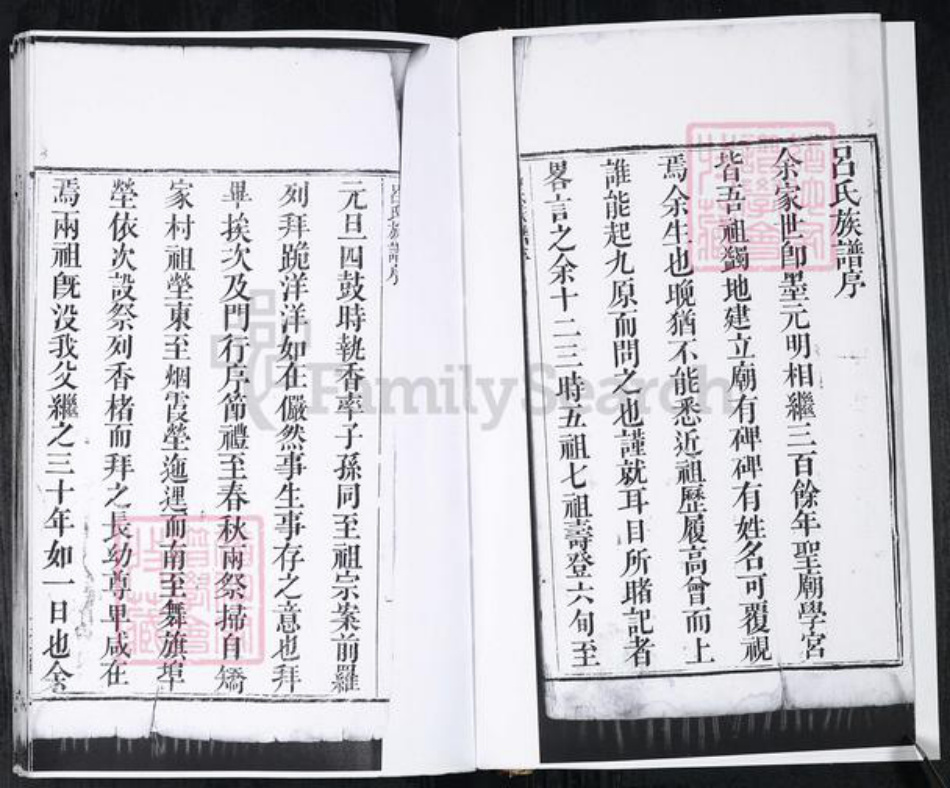 呂氏族譜序
余家世卽墨元明相繼三百餘年聖廟學宮
皆吾祖蠲地建立廟有碑碑有姓名可覆視
焉余生也晚猶不能悉近祖歷履高曾而上
誰能起九原而問之也謹就耳目所睹記者
畧言之余十二三時五祖七祖壽登六旬至
呂氏族譜序
元日一四鼓時執香率子孫同至祖宗案前羅
列拜跪洋洋如在儼然事生事存之意也拜
畢挨次及門行序節禮至春秋兩祭掃自矯
家村祖塋東至烟霞塋迤邐而南至舞旗埠
塋依次設祭列香楮而拜之長幼尊卑咸在
焉兩祖旣没我父繼之三十年如一日也余
FamilySearch